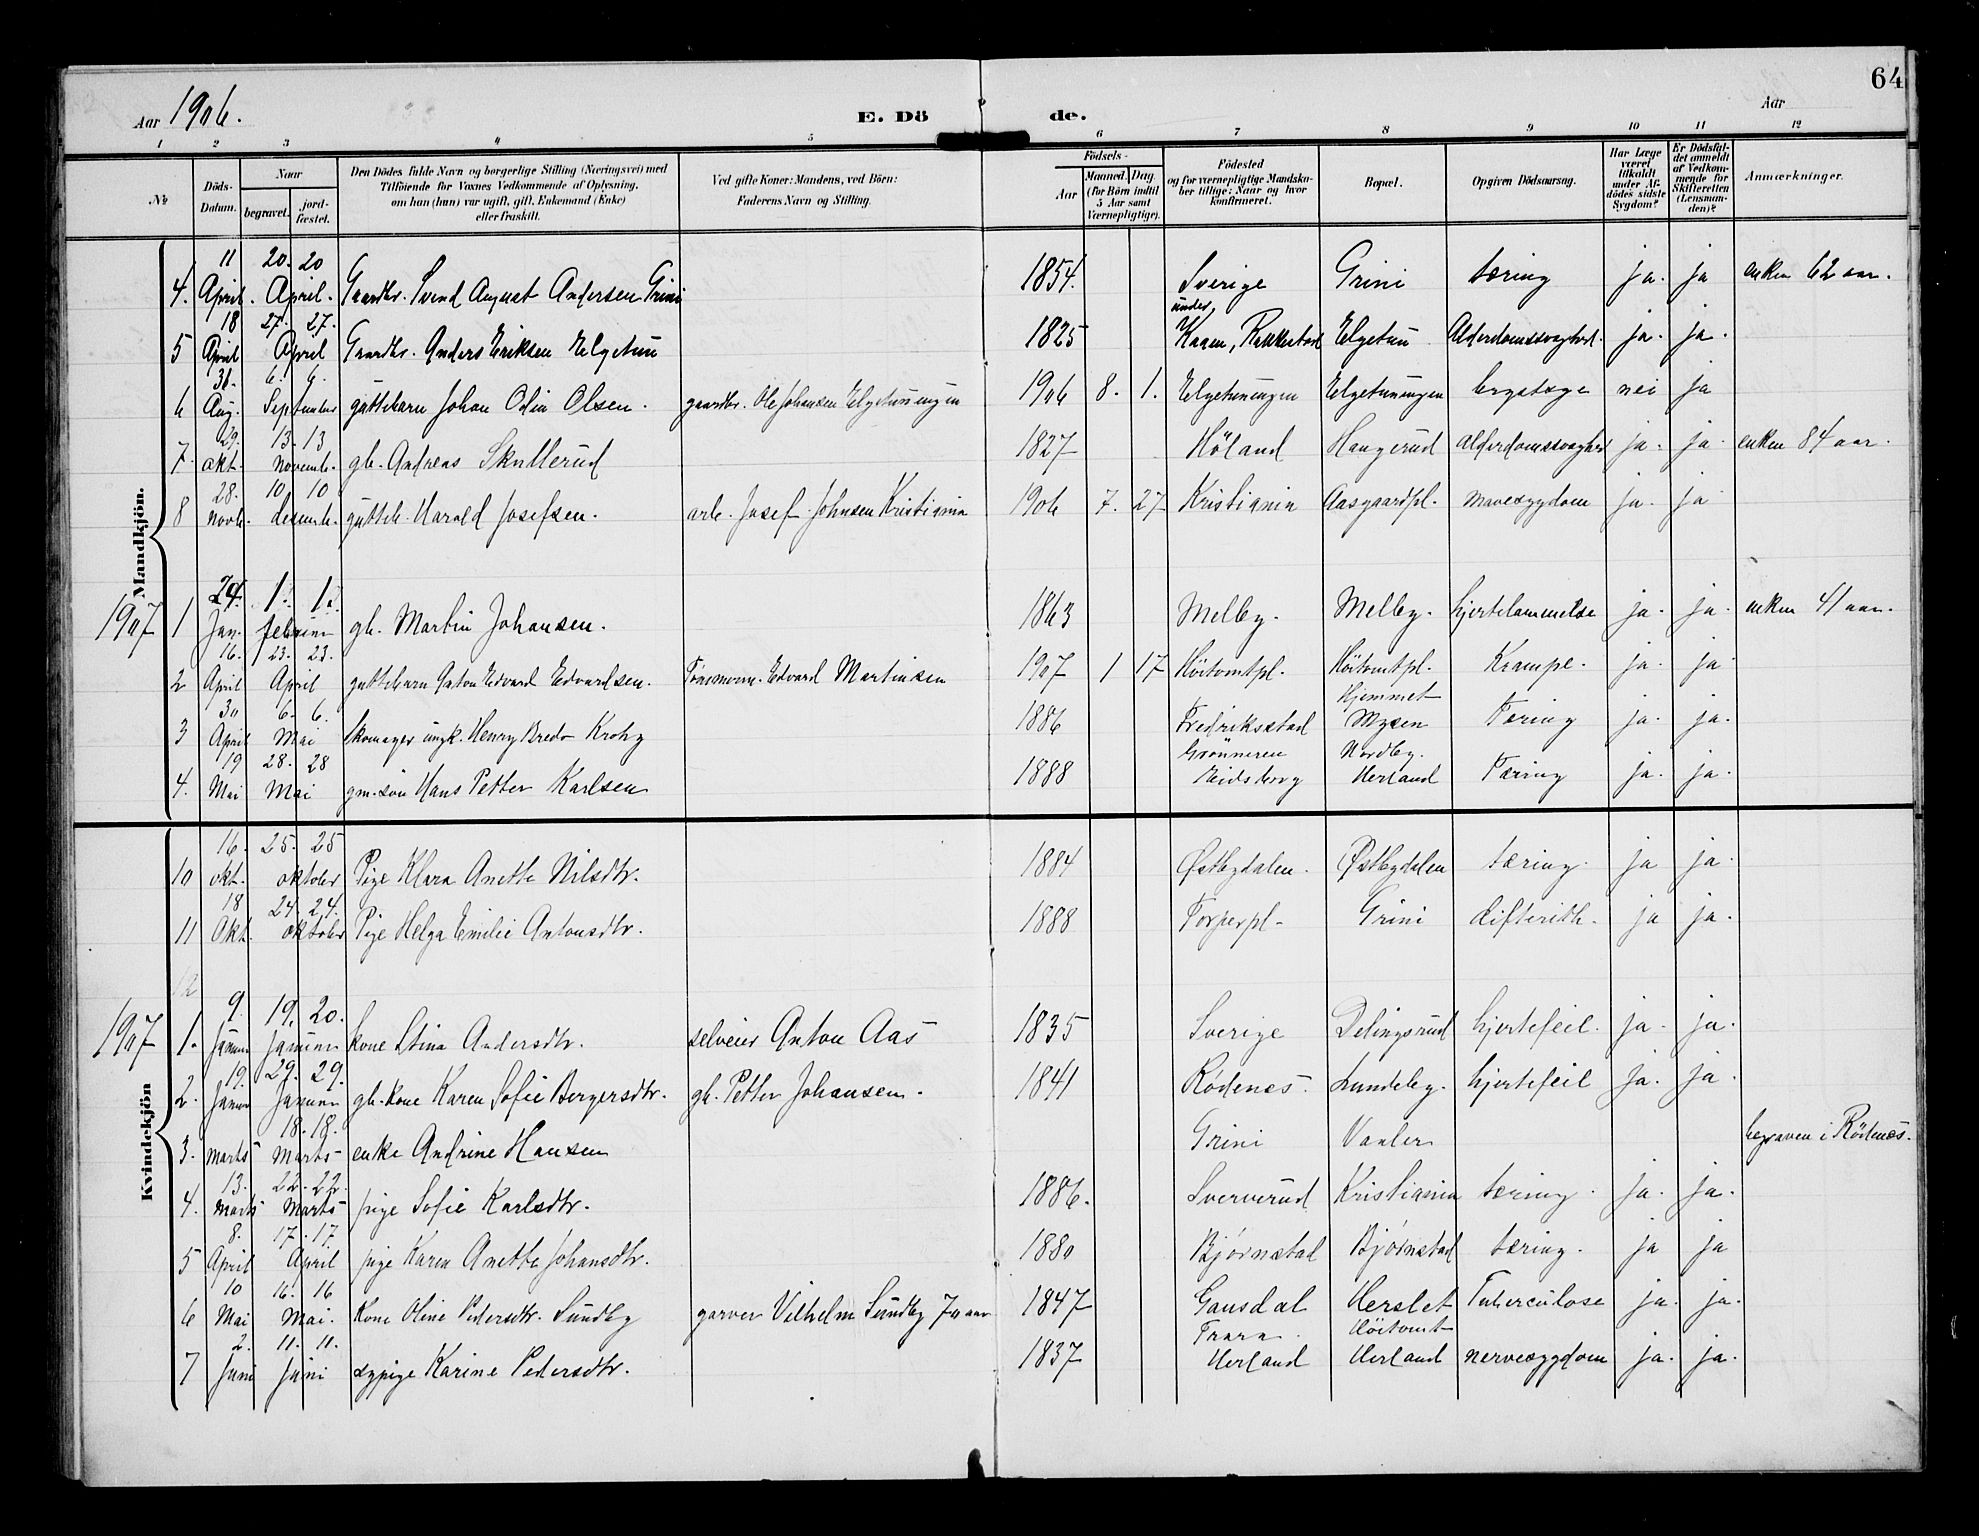 64
Aar 1906. E. Dö de. Aar
1 2 3 4 5 6 7 8 9 10 11 12
№ Döds-Datum. Naar begravet. jordfæstet. Den Dödes fulde Navn og borgerlige Stilling (Næringsvei) med Tilföiende för Voxnes Vedkommende af Oplysning, om han (hun) var ugift, gift, Enkemand (Enke) eller fraskilt. Ved gifte Koner: Mandens, ved Börn: Faderens Navn og Stilling. Födsels- Aar Maaned. Dag. (for Börn indtil 5 Aar samt Værnepligtige). Födested og for værnepligtige Mandskaber tillige: Naar og hvor Konfirmeret. Bopæl. Opgiven Dödsaarsag. Har Læge været tilkaldt under Afdödes sidste Sygdom? Er Dödsfaldet anmeldt af Vedkommende for Skifteretten (Lensmanden)? Anmærkninger.
Mandkjön.
4. 11 April. 20. 20 April. Gaardbr. Svend August Andersen Grini 1854. Sverige Grini tæring ja. ja enken 62 aar.
5 18 April 27. 27. April Gaardbr. Anders Eriksen Elgetun 1825 under Kaaen, Rakkestad Elgetun Alderdomssvaghed. ja. ja.
6 31. Aug. 6. 6. September guttebarn Johan Odin Olsen. gaardbr. Ole Johansen Elgetuningen 1906 8. 1. Elgetuningen Elgetuningen brystsyge nei ja
7. 29. okt. 13. 13 novemb. gb. Andreas Skullerud 1827 Höland Haugerud alderdomssvaghed ja. ja. enken 84 aar.
8 28. novb. 10 10 desemb. gutteb. Harald Josefsen. arb. Josef Johnsen Kristiania 1906 7. 27 Kristiania Aasgaardpl. mavesygdom ja. ja
1907 1 24. Jan. 1. 1. februar gb. Martin Johansen. 1863 Melby. Melby. hjertelammelse ja. ja. enken 41 aar.
2 16. April 23. 23. April guttebarn Anton Edvard Edvardsen. Tömmerm. Edvard Martinsen 1907 1 17 Höitomtpl. Höitomtpl. Krampe. ja. ja.
3 30 April 6. 6. Mai Skomager ungk. Henry Bredo Krohg 1886 Fredriksstad Hjemmet Mysen Tæring ja. ja.
4. 19 Mai 28. 28 Mai gm. sön Hans Petter Karlsen 1888 Grönneren Eidsberg Nordby. Herland Tæring ja. ja.
Kvindekjön
10 16. okt. 25. 25 oktober Pige Klara Anette Nilsdtr. 1884 Østbydalen. Østbydalen tæring. ja ja.
11 18 Okt. 24 24. oktober Pige Helga Emilie Antonsdtr. 1888 Torperpl. Grini difterith. ja ja.
12
1907 1. 9. Januar 19. 20. Januar Kone Stina Andersdtr. selveier Anton Aas 1835 Sverige Delingsrud hjertefeil. ja. ja.
2. 19. Januar 29. 29. Januar gb. kone Karen Sofie Bergersdtr. gb. Petter Johansen. 1841 Rödenes. Lundeby. hjertefeil ja. ja.
3. marts 18. 18. Marts enke Andrine Hansen Grini Vanler begraven i Rödenes.
4. 13. marts 22. 22. Marts pige Sofie Karlsdtr. 1886. Sververud Kristiania tæring. ja. ja.
5 8. April 17. 17. April pige Karen Anette Johansdtr. 1880 Bjørnstad Bjørnstad tæring. ja ja
6 10 Mai 16. 16 Mai. Kone Oline Pedersdtr. Sundby garver Vilhelm Sundby 70 aar 1847 Gausdal Herslet Tuberculose ja. ja.
7 2. Juni 11. 11. Juni sypige Karine Pedersdtr. 1837 Trara. Herland Höitomt Herland nervesygdom ja. ja.